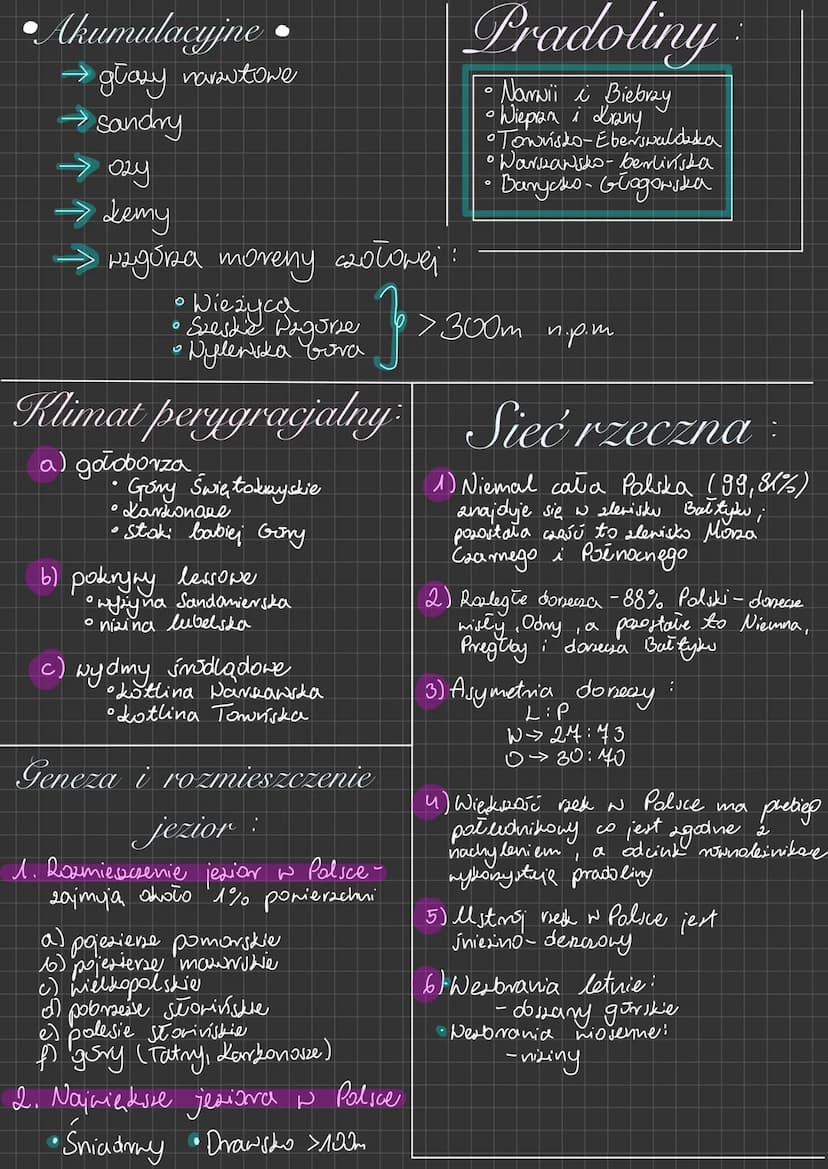 • Akumulacyjne •
→ głazy narzutowe
→ sandry
→ ozy
→ kemy
→ wzgórza moreny czołowej :
• Wieżyca
• Szeskie Wzgórze
• Dylewska Góra
} > 300m n.p.m
Pradoliny :
• Narwii i Biebrzy
• Wieprza i Krzny
• Toruńsko-Eberswaldzka
• Warszawsko-berlińska
• Barycko-Głogowska
Klimat perygracjalny:
a) gołoborza
• Góry Świętokrzyskie
• Karkonosze
• Stoki babiej Góry
b) pokrywy lessowe
• wyżyna Sandomierska
• nizina lubelska
c) wydmy śródlądowe
• kotlina Warszawska
• kotlina Toruńska
Geneza i rozmieszczenie
jezior :
1. Rozmieszczenie jezior w Polsce -
zajmują około 1% powierzchni
a) pojezierze pomorskie
b) pojezierze mazurskie
c) wielkopolskie
d) pobrzeże słowińskie
e) polesie słowińskie
f) góry (Tatry, Karkonosze)
2. Największe jeziora w Polsce
• Śniadrwy • Drawsko >100m
Sieć rzeczna :
1) Niemal cała Polska (99,81%)
znajduje się w zlewisku Bałtyku;
pozostała część to zlewisko Morza
Czarnego i Północnego
2) Rozległe dorzecza - 88% Polski - dorzecze
wisły, Odry, a pozostałe to Niemna,
Pregoły i dorzecza Bałtyku
3) Asymetria dorzeczy :
L : P
W → 27 : 73
O → 30 : 70
4) Większość rzek w Polsce ma przebieg
południkowy co jest zgodne z
nachyleniem, a odcinki równoleżnikowe
wykorzystują pradoliny
5) Ustrój rzek w Polsce jest
śnieżno-deszczowy
6) • Wezbrania letnie:
- obszary górskie
• Wezbrania wiosenne:
- niziny